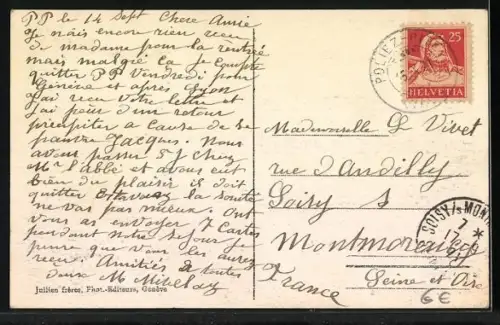 PP le 14 Sept Chere Amie
Je n'ais encore rien recu
de madame pour la rentrée
mais malgré ça je compte
quitter PP Vendredi pour
Genève et apres Dijon
j'ai recu Votre lettre et
j'ai peur d'un retour
precipiter a cause de se
pauvre Jacques. Nous
avons passer 5 J chez
Mr l'abbé et avons eut
bien du plaisir il doit
quitter la santé
ne vas pas mieux. Ont
vous as envoyer 7 Cartes
pendant notre sejour je
pense que vous les aurez
recu. Amitiés a toutes
M
Jullien frères, Phot.-Editeurs, Genève
25
HELVETIA
POLIEZ
Mademoiselle L Vivet
rue d'Andilly
Soisy s
Montmorency
Seine et Oise
France
SOISY s/s MONT
17
6€